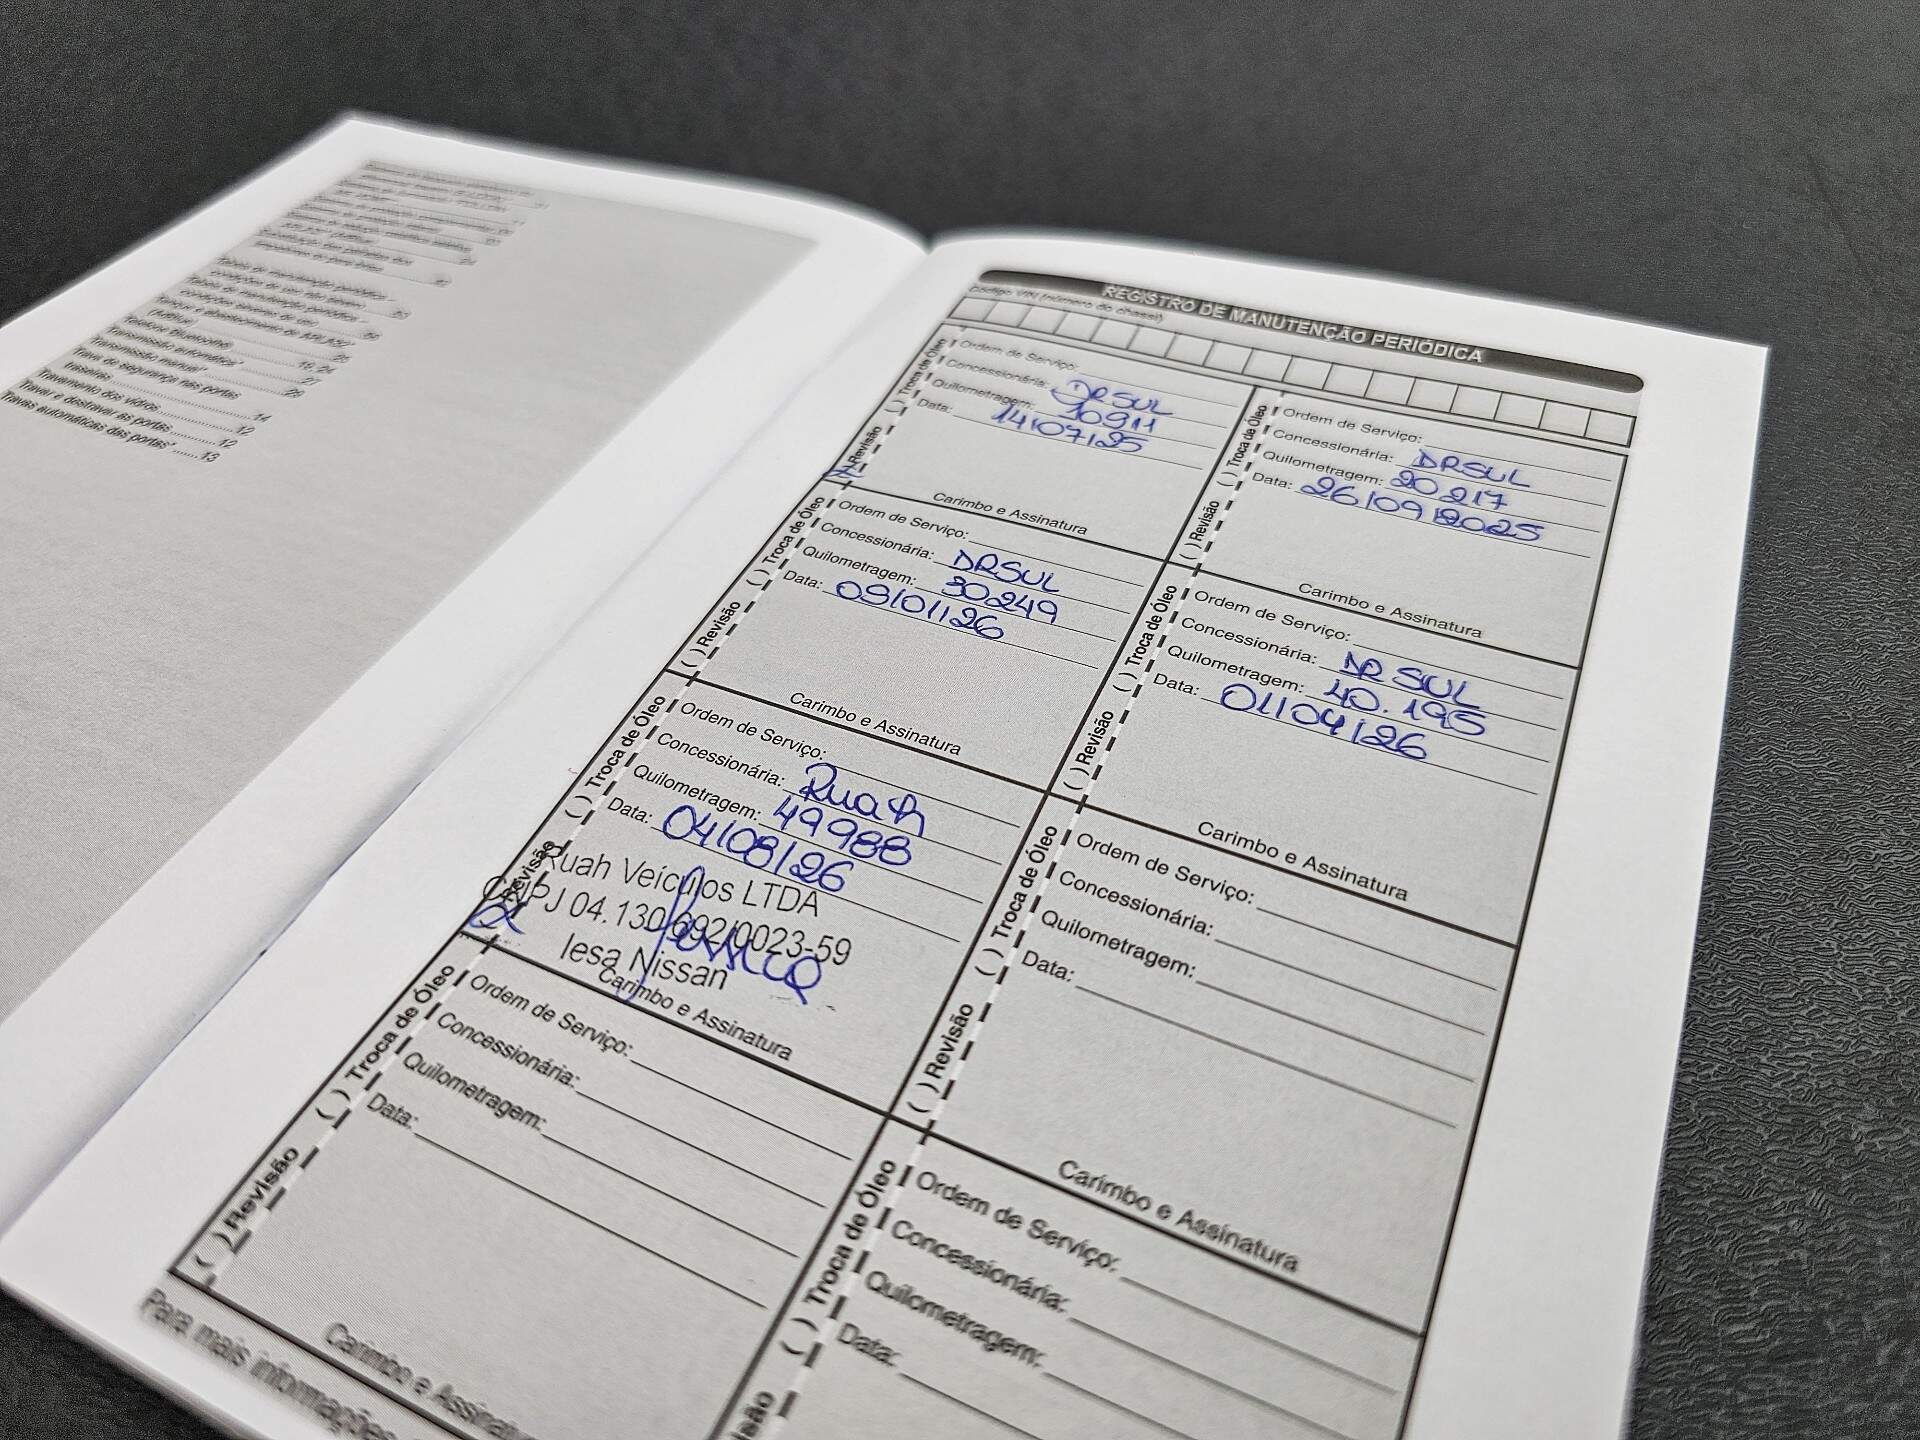 Tabela de manutenção periódica -
condições de uso não severo
Tabela de manutenção periódica -
condições severas de uso
(AdBlue)
Telefone Bluetooth®
Transmissão automática* 18, 24
Transmissão manual*
Trava de segurança nas portas
traseiras
Travamento dos vidros 14
Travar e destravar as portas 12
Travas automáticas das portas* 13
REGISTRO DE MANUTENÇÃO PERIÓDICA
Código VIN (número do chassi)
( ) Revisão ( ) Troca de Óleo
Ordem de Serviço:
Concessionária: DRSUL
Quilometragem: 10911
Data: 14/07/25
Carimbo e Assinatura
( ) Revisão ( ) Troca de Óleo
Ordem de Serviço:
Concessionária: DRSUL
Quilometragem: 20217
Data: 26/09/2025
Carimbo e Assinatura
( ) Revisão ( ) Troca de Óleo
Ordem de Serviço:
Concessionária: DRSUL
Quilometragem: 30249
Data: 09/01/26
Carimbo e Assinatura
( ) Revisão ( ) Troca de Óleo
Ordem de Serviço:
Concessionária: DRSUL
Quilometragem: 40.195
Data: 01/04/26
Carimbo e Assinatura
Revisão ( ) Troca de Óleo
Ordem de Serviço:
Concessionária: Ruah
Quilometragem: 49988
Data: 04/08/26
Ruah Veiculos LTDA
CNPJ 04.130.692/0023-59
Iesa Nissan
Carimbo e Assinatura
( ) Revisão ( ) Troca de Óleo
Ordem de Serviço:
Concessionária:
Quilometragem:
Data:
Carimbo e Assinatura
( ) Revisão ( ) Troca de Óleo
Ordem de Serviço:
Concessionária:
Quilometragem:
Data:
Carimbo e Assinatura
( ) Troca de Óleo
Ordem de Serviço:
Concessionária:
Quilometragem:
Data:
Para mais informações